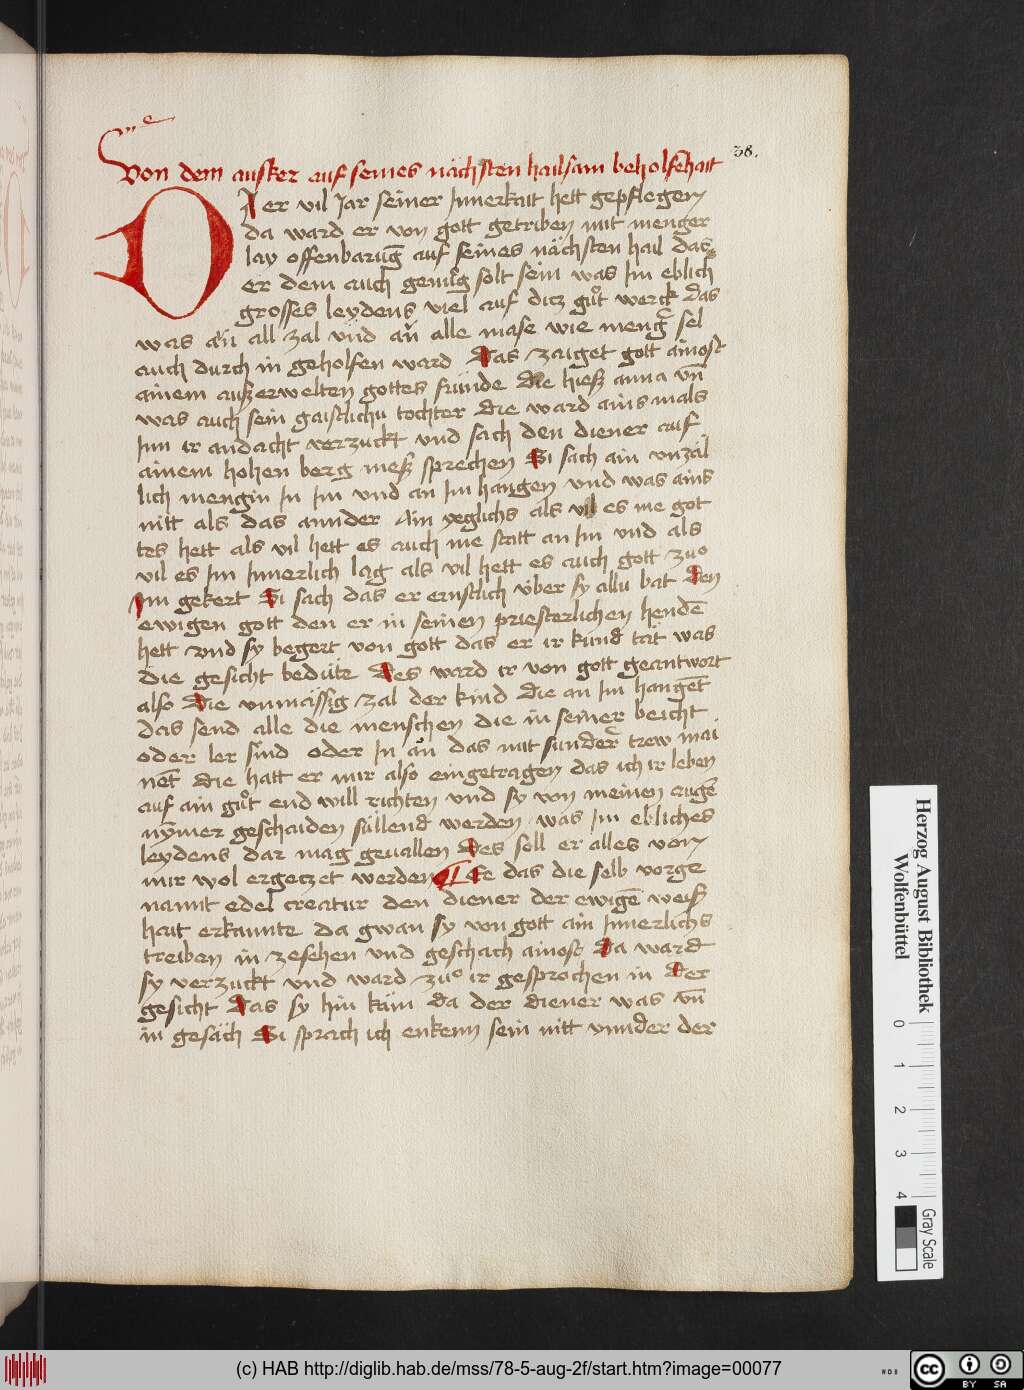 38.
Von dem ausker auf seines nächsten hailsam beholfe̅hait
DO er vil Jar seiner Jnnerkait hett gepflegen
da ward er von gott getriben mit menger
lay offenbaru̅g auf seines nächsten hail das
er dem auch genůg solt sein was Jm eblich
grosses leydens viel auf ditz gůt werck das
was an all zal vnd an alle mase wie meng̅ sel
auch durch in geholfen ward Das zaiget gott ainost
ainem auszerwelten gottes fründe Die hiesz anna vn̅
was auch sein gaistlichu tochter die ward ains mals
Jnn ir andacht verzuckt vnd sach den diener auf
ainem hohen berg mesz sprechen Si sach ain vnzäl
lich mengin Jn Jm vnd an Jm hangen vnd was ains
nitt als das annder Ain yeglichs als vil es me got
tes hett als vil hett es auch me statt an Jm vnd als
vil es Jm Jnnerlich lag als vil hett es auch gott zuo
Jm gekert Si sach das er ernstlich über sy allu bat Den
ewigen gott den er in seinen priesterlichen hende̅
hett vnd sy begert von gott das er ir kund tät was
die gesicht bedüte Des ward ir von gott geantwort
also Die vnmässig zal der kind die an Jm hange̅t
das send alle die menschen die in seiner beicht
oder ler sind oder Jn an das mit sunder trew mai
ne̅t die hatt er mir also eingetragen das ich ir leben
auf ain gůt end will richten vnd sy von meinen auge̅
nymer geschaiden süllend werden was Jm ebliches
leydens dar mag geuallen Des soll er alles von
mir wol ergetzet werden ¶ Ee das die selb vorge
nannt edel creatur den diener der ewige̅ weisz
hait erkannte da gwan sy von gott ain Jnnerlichs
treiben in zesehen vnd geschach ainost Da ward
sy verzuckt vnd ward zuo ir gesprochen in der
gesicht Das sy hin käm da der diener was vn̅
in gesäch Si sprach ich enkenn sein nitt vnnder der
Herzog August Bibliothek
Wolfenbüttel
0 1 2 3 4
Gray Scale
(c) HAB http://diglib.hab.de/mss/78-5-aug-2f/start.htm?image=00077
WDB
cc BY SA